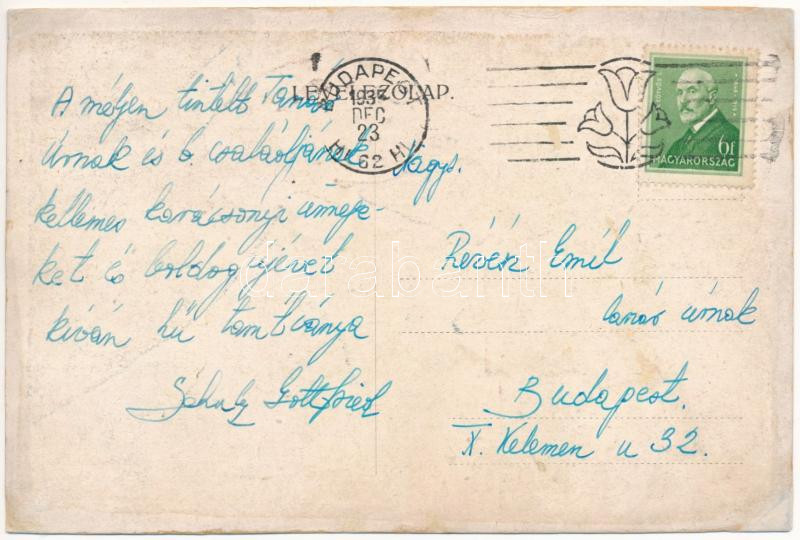 LEVELEZŐLAP.
BUDAPEST
193
DEC
23
62
6f
MAGYARORSZÁG
A mélyen tisztelt Tanár
Úrnak és b. családjának
kellemes karácsonyi ünnepe-
ket és boldog újévet
kíván hű tanítványa
Schulz Gottfried
Nagys.
Révész Emil
tanár úrnak
Budapest.
X. Kelemen u 32.
darabanth